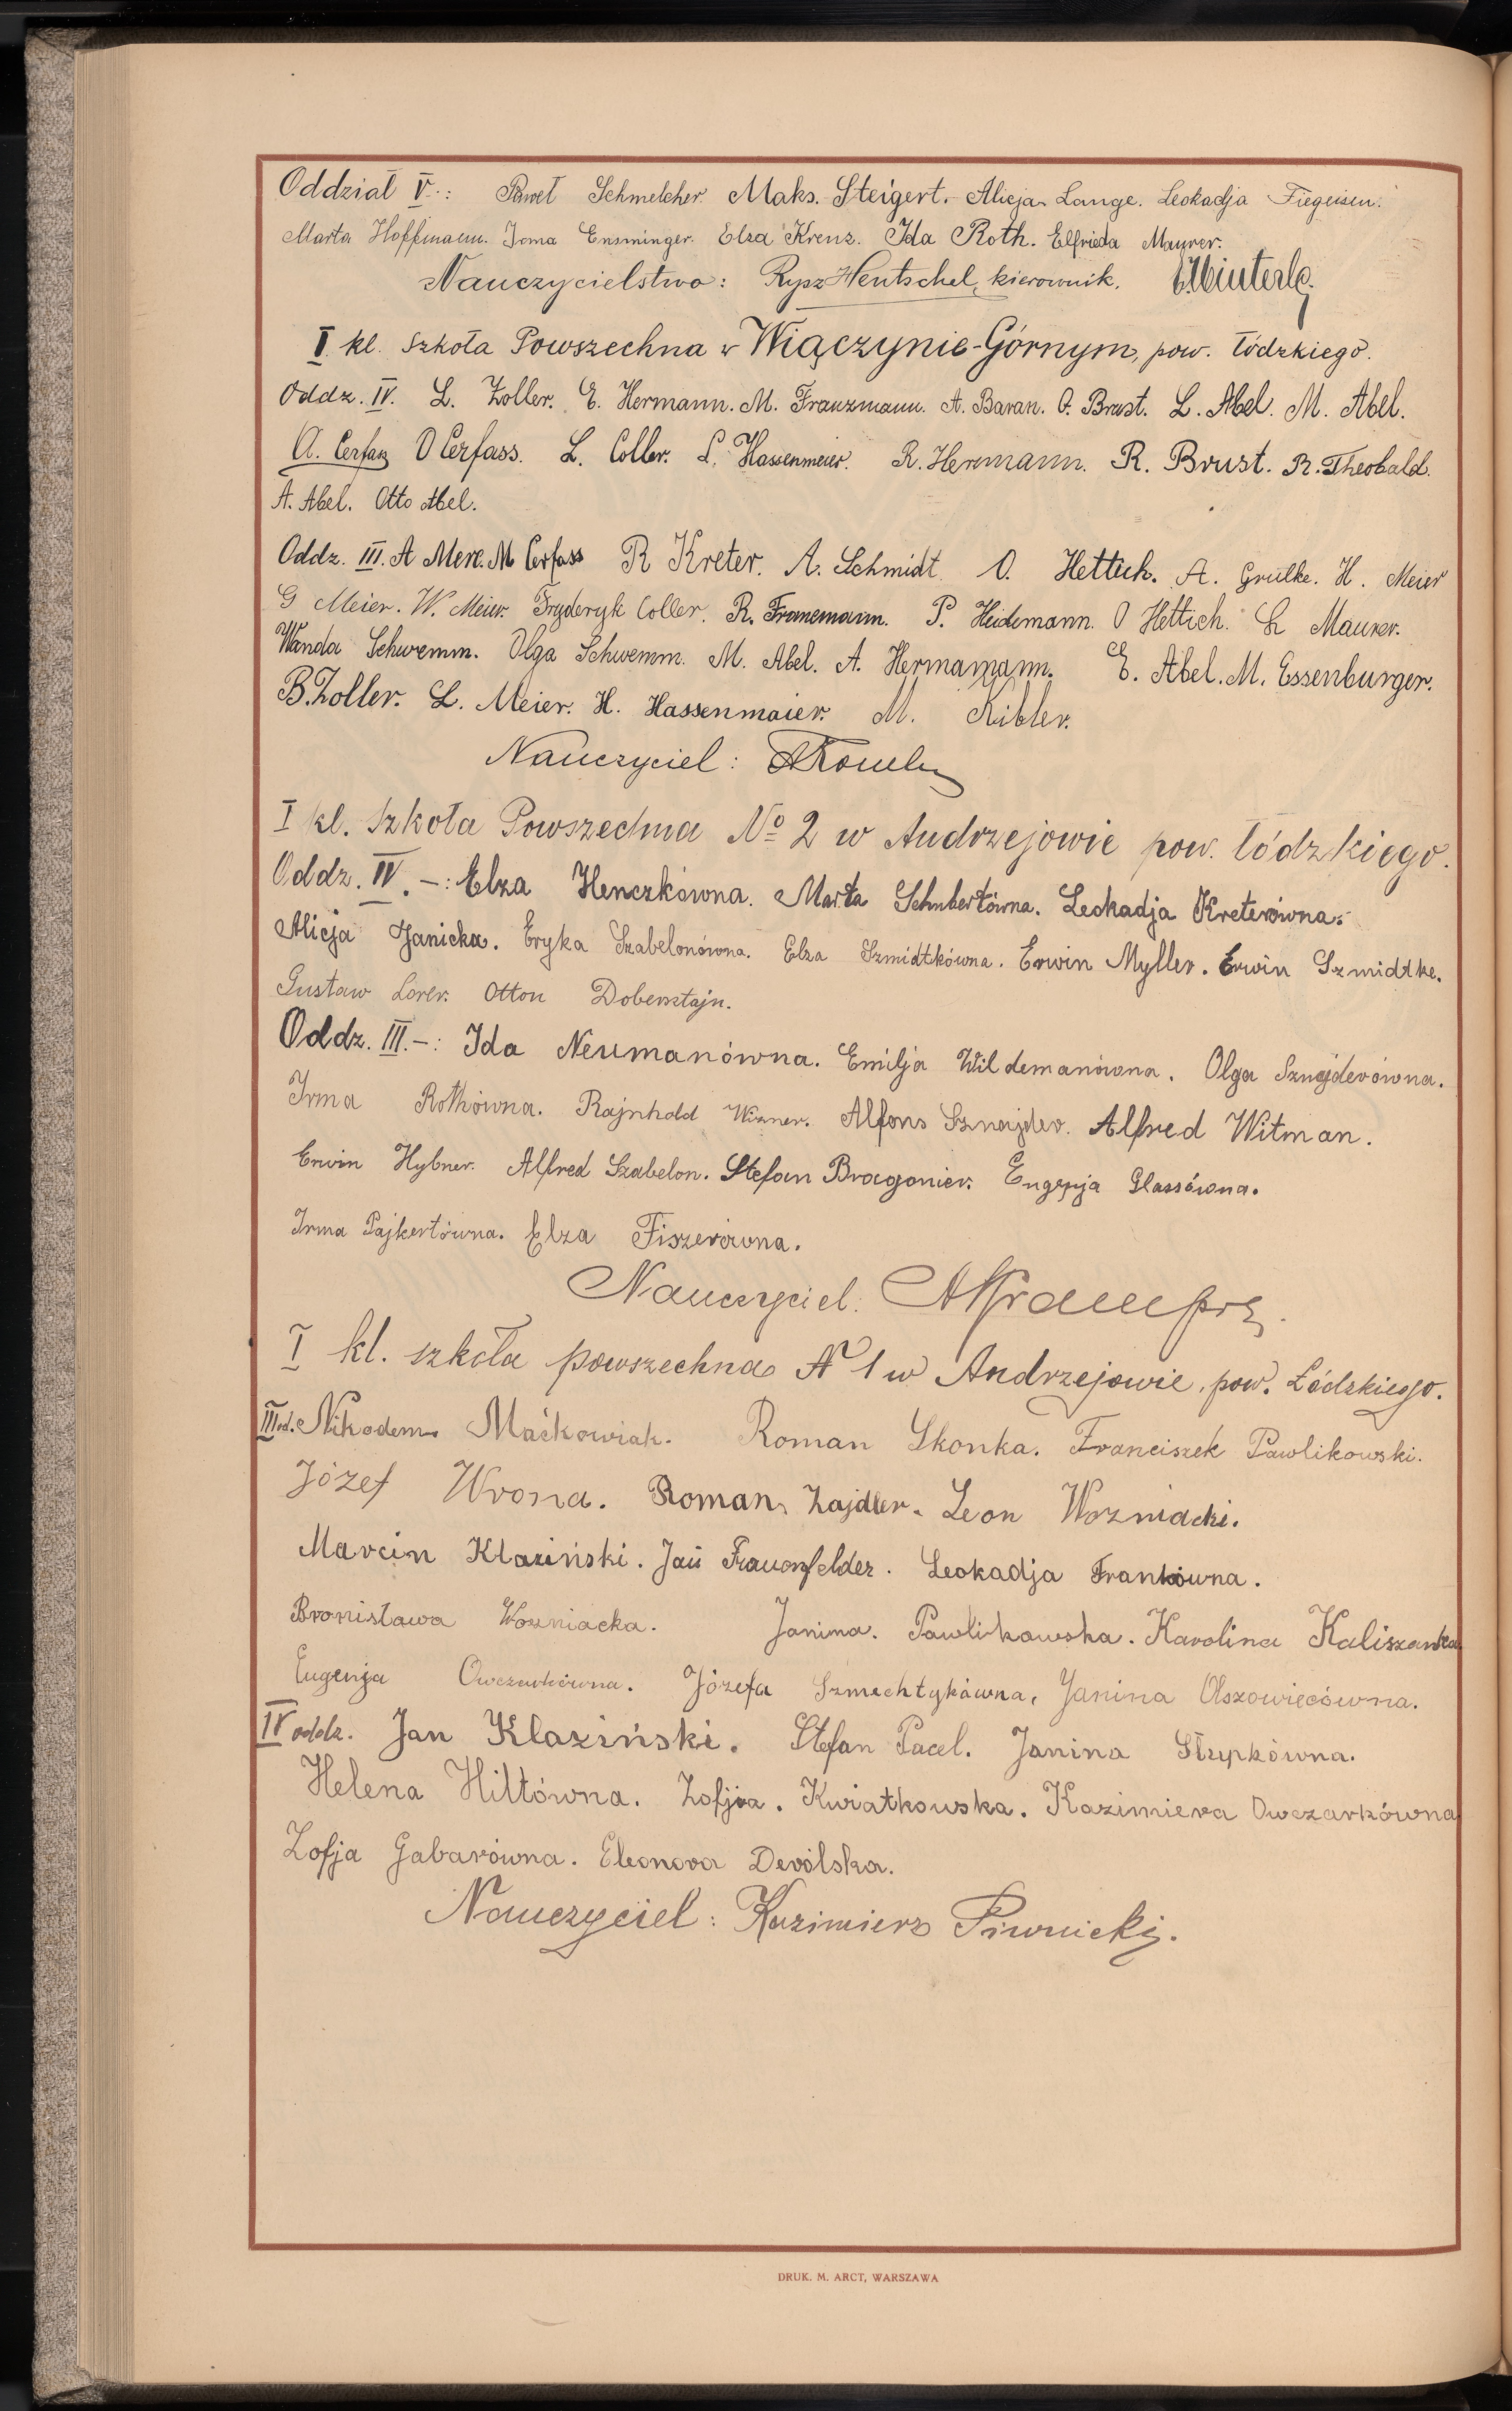 Oddział V.: Paweł Schmelcher. Maks. Steigert. Alicja Lange. Leokadja Fiegeisen.
Marta Hoffmann. Irma Ensminger. Elza Krenz. Ida Roth. Elfrieda Maurer.
Nauczycielstwo: Rysz Hentschel, kierownik.
I kl. Szkoła Powszechna w Wiączynie-Górnym, pow. łódzkiego.
Oddz. IV. L. Zoller. E. Hermann. M. Franzmann. A. Baran. O. Brust. L. Abel. M. Abel.
A. Cerfass O Cerfass. L. Coller. L. Hassenmeier. R. Hermann. R. Brust. R. Theobald.
A. Abel. Otto Abel.
Oddz. III. A Merc. M Cerfass R Kreter. A. Schmidt O. Hettich. A. Grulke. H. Meier
G Meier. W. Meier. Fryderyk Coller. R. Franemann. P. Heidemann. O Hettich. L Maurer.
Wanda Schwemm. Olga Schwemm. M. Abel. A. Hermamann. E. Abel. M. Essenburger.
B. Zoller. L. Meier. H. Hassenmaier. M. Kibler.
Nauczyciel:
I kl. Szkoła Powszechna No 2 w Andrzejowie pow. łódzkiego.
Oddz. IV. -: Elza Henczkówna. Marta Schubertówna. Leokadja Kreterówna.
Alicja Janicka. Eryka Szabelonówna. Elza Szmidtkówna. Erwin Myller. Erwin Szmidtke.
Gustaw Lorer. Otton Dobersztajn.
Oddz. III. -: Ida Neumanówna. Emilja Wildemanówna. Olga Sznajderówna.
Irma Rothówna. Rajnhold Wizner. Alfons Sznajder. Alfred Witman.
Erwin Hybner. Alfred Szabelon. Stefan Bragonier. Eugenja Glassówna.
Irma Pajkertówna. Elza Fiszerówna.
Nauczyciel:
I kl. szkoła powszechna N 1 w Andrzejowie, pow. Łódzkiego.
III od. Nikodem Maćkowiak. Roman Skonka. Franciszek Pawlikowski.
Józef Wrona. Roman Zajdler. Leon Wozniacki.
Marcin Klaziński. Jan Frauenfelder. Leokadja Frankówna.
Bronisława Wozniacka. Janina. Pawlikowska. Karolina Kaliszanka.
Eugenja Owczarkówna. Józefa Szmechtykówna, Janina Olszowiecówna.
IV oddz. Jan Klaziński. Stefan Pacel. Janina Słupkówna.
Helena Hiltówna. Zofja. Kwiatkowska. Kazimiera Owczarkówna
Zofja Gabarówna. Eleonora Devólska.
Nauczyciel: Kazimierz Piwnicki.
DRUK. M. ARCT, WARSZAWA